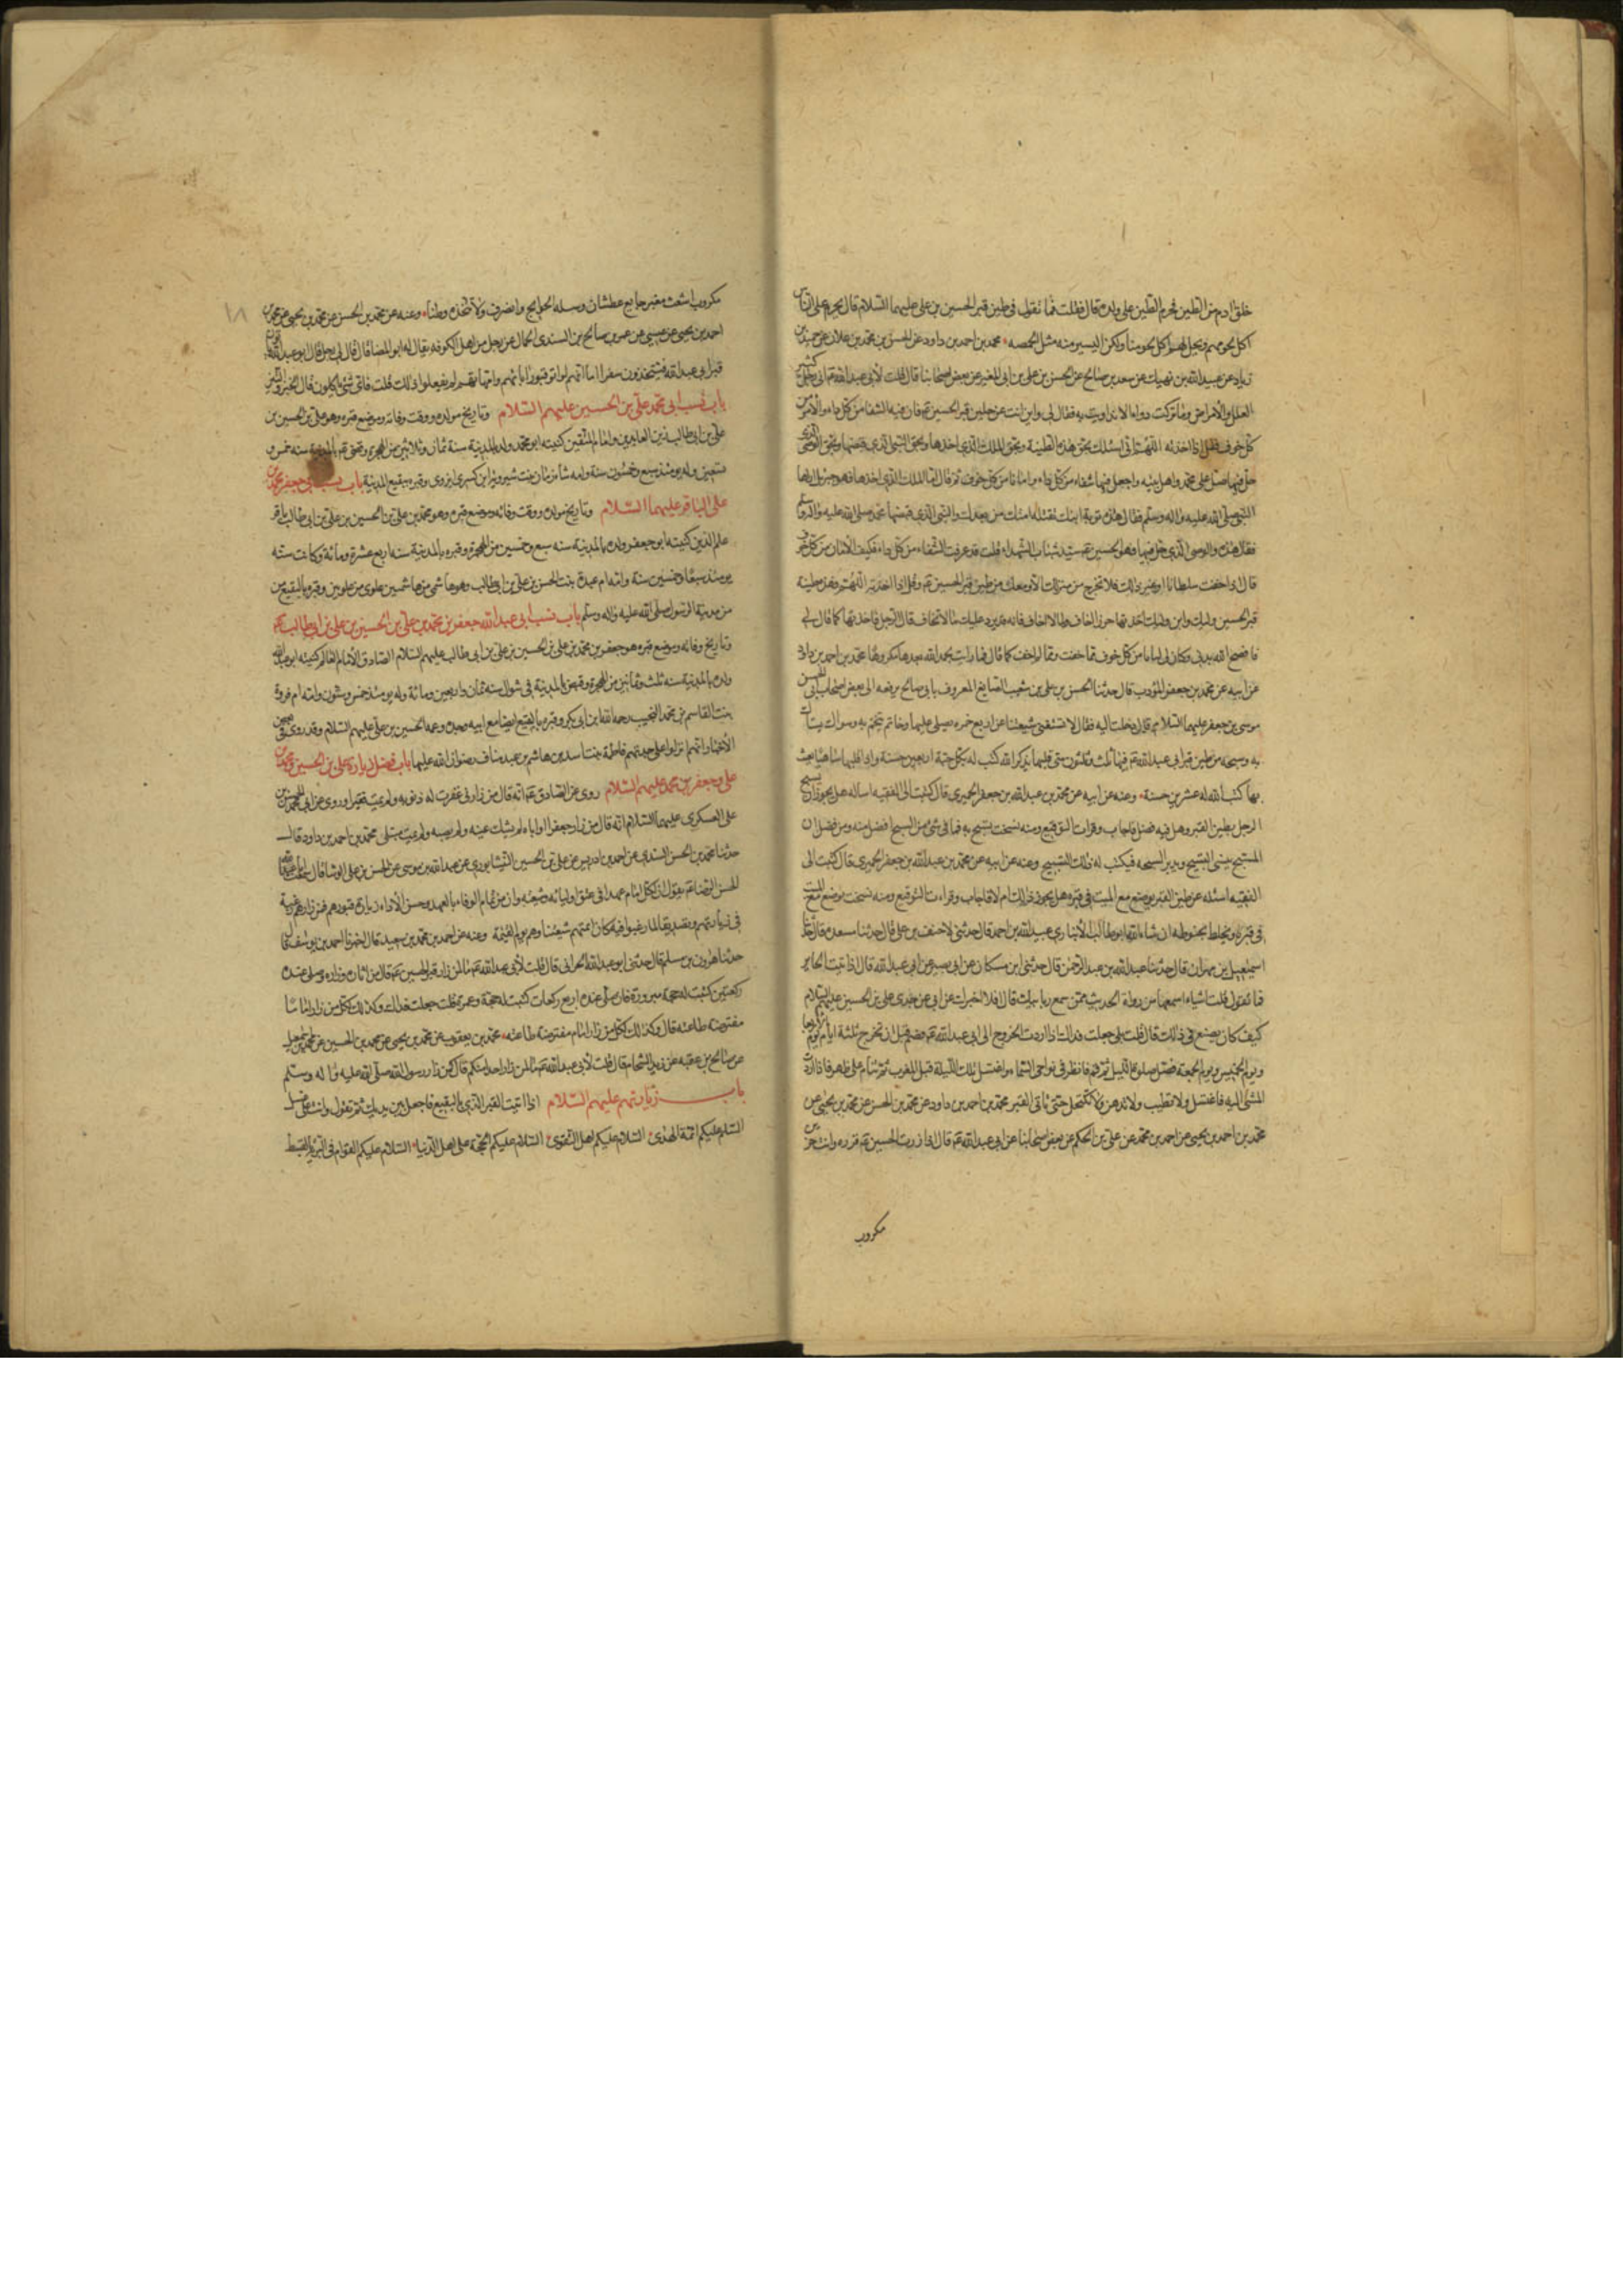 خلق ادم من الطين فحرم الطين على ولده قال فقلت فما تقول في طين قبر الحسين بن علي عليهما السلام قال يحرم على الناس
اكل لحومهم ويحل لهم اكل لحومنا ولكن اليسير منه مثل الحمصه محمد بن احمد بن داود عن الحسن بن محمد بن علان عن حميد بن
زياد عن عبيد الله بن نهيك عن سعد بن صالح عن الحسن بن علي بن ابي المغيره عن بعض اصحابنا قال قلت لأبي عبد الله ع اني رجل كثير
العلل والأمراض وما تركت دواء الا تداويت به فقال لي واين انت عن طين قبر الحسين ع فان فيه الشفا من كل داء والأمن من
كل خوف فقل اذا اخذته اللهم اني اسئلك بحق هذه الطينة وبحق الملك الذي اخذها وبحق النبي الذي قبضها وبحق الوصي الذي
حل فيها صل على محمد واهل بيته واجعل فيها شفاء من كل داء وامانا من كل خوف ثم قال اما الملك الذي اخذها فهو جبرئل اراها
النبي صلى الله عليه واله وسلم فقال هذه تربة ابنك تقتله امتك من بعدك والنبي الذي قبضها محمد صلى الله عليه واله
فقال هذه والوصي الذي حل فيها فهو الحسين ع سيد شباب الشهداء قلت قد عرفت الشفاء من كل داء فكيف الأمان من كل خوف
قال اذا خفت سلطانا او غير ذلك فلا تخرج من منزلك الا ومعك من طين قبر الحسين ع وقل اذا اخذته اللهم هذه طينة
قبر الحسين وليك وابن وليك اخذتها حرزا لما اخاف ولما لا اخاف فانه قد يرد عليك مالا تخاف قال الرجل فاخذتها كما قال لي
فاصح الله بدني وكان لي امانا من كل خوف مما خفت ومما لم اخف كما قال فما رايت بحمد الله بعدها مكروها محمد بن احمد بن داود
عن ابيه عن محمد بن جعفر المؤدب قال حدثنا الحسن بن علي بن شعيب الصايغ المعروف بابي صالح يرفعه الى بعض اصحاب ابي الحسن
موسى بن جعفر عليهما السلام قال دخلت اليه فقال لا تستغني شيعتنا عن اربع خمره يصلي عليها وخاتم يتختم به وسواك يستاك
به وسبحه من طين قبر ابي عبد الله ع فيها ثلث وثلثون متى قلبها يذكر الله كتب له بكل حبة اربعين حسنة واذا قلبها ساهيا يعبث
بها كتب الله له عشرين حسنة وعنه عن ابيه عن محمد بن عبد الله بن جعفر الحميري قال كتبت الى الفقيه اساله هل يجوز ان يسبح
الرجل بطين القبر وهل فيه فضل فاجاب وقرات التوقيع ومنه نسخت يسبح به فما في شئ من السبح افضل منه ومن فضله ان
المسبح ينسى التسبيح ويدير السبحه فيكتب له ذلك التسبيح وعنه عن ابيه عن محمد بن عبد الله بن جعفر الحميري قال كتبت الى
الفقيه اسئله عن طين القبر يوضع مع الميت في قبره هل يجوز ذلك ام لا فاجاب وقراءت التوقيع ومنه نسخت يوضع مع الميت
في قبره ويخلط بحنوطه ان شاء الله ابو طالب الأنباري عبد الله بن احمد قال حدثني الاحنف بن علي قال حدثنا مسعده قال حدثنا
اسمعيل بن مهران قال حدثنا عبد الله بن عبد الرحمن قال حدثني ابن مسكان عن ابي بصير عن ابي عبد الله قال اذا اتيت الحاير
فما تقول قلت اشياء اسمعها من رواة الحديث ممن سمع من ابيك قال افلا اخبرك عن ابي عن جدي علي بن الحسين عليهم السلام
كيف كان يصنع في ذلك قال قلت بلى جعلت فداك قال اذا اردت الخروج الى ابي عبد الله ع فصم قبل ان تخرج ثلثة ايام يوم الاربعا
ويوم الخميس ويوم الجمعة فصل صلوة الليل ثم قم فانظر في نواحي السماء واغتسل تلك الليلة قبل المغرب ثم تنام على طهر فاذا اردت
المشي اليه فاغتسل ولا تطيب ولا تدهن ولا تكتحل حتى تاتي القبر محمد بن احمد بن داود عن محمد بن الحسن عن محمد بن يحيى عن
محمد بن احمد بن يحيى عن احمد بن محمد عن علي بن الحكم عن بعض اصحابنا عن ابي عبد الله ع قال اذا زرت الحسين ع فزره وانت حزين
مكروب
١٨
مكروب اشعث مغبر جايع عطشان وسله الحوايج وانصرف ولا تتخذه وطنا وعنه عن محمد بن الحسن عن محمد بن يحيى عن محمد بن
احمد بن يحيى عن عيسى عن صالح عن السندي الجمال عن رجل من اهل الكوفه يقال له ابو المضا قال قال لي رجل قال ابو عبد الله تاتون
قبر ابي عبد الله فتتخذون سفرا اما انهم لو اتو قبور ابائهم وامهاتهم لم يفعلوا ذلك قلت فاي شئ ياكلون قال الخبز واللبن
باب نسب ابي محمد علي بن الحسين عليهم السلام وتاريخ مولده ووقت وفاته وموضع قبره وهو علي بن الحسين بن
علي بن ابي طالب زين العابدين وامام المتقين كنيته ابو محمد ولد بالمدينة سنة ثمان وثلاثين من الهجرة وقبض ع بالمدينة سنه خمس و
تسعين وله يومئذ سبع وخمسون سنة وامه شاه زنان بنت شيرويه ابن كسرى ابرويز وقبره ببقيع المدينة باب نسب ابي جعفر محمد بن
علي الباقر عليهما السلام وتاريخ مولده ووقت وفاته وموضع قبره وهو محمد بن علي بن الحسين بن علي بن ابي طالب باقر
علم الدين كنيته ابو جعفر ولد بالمدينة سنه سبع وخمسين من الهجرة وقبره بالمدينة سنه اربع عشرة ومائة وكانت سنه
يومئذ سبعا وخمسين سنة وامه ام عبدة بنت الحسن بن علي بن ابي طالب وهو هاشمي من هاشميين علوي من علويين وقبره بالبقيع من
من مدينة الرسول صلى الله عليه واله وسلم باب نسب ابي عبد الله جعفر بن محمد بن علي بن الحسين بن علي بن ابي طالب ع
وتاريخ وفاته وموضع قبره هو جعفر بن محمد بن علي بن الحسين بن علي بن ابي طالب عليهم السلام الصادق الأمام العالم كنيته ابو عبد الله
ولد بالمدينة سنه ثلث وثمانين من الهجرة وقبض بالمدينة في شوال سنه ثمان واربعين ومائة وله يومئذ خمس وستون وامه ام فروة
بنت القاسم بن محمد النجيب رحمه الله ابن ابي بكر وقبره بالبقيع ايضا مع ابيه وجده وعمه الحسين بن علي عليهم السلام وقد روي في بعض
الأخبار انهم نزلوا على جدتهم فاطمة بنت اسد بن هاشم بن عبد مناف رضوان الله عليها باب فضل زيارة علي بن الحسين ومحمد بن
علي وجعفر بن محمد عليهم السلام روي عن الصادق ع انه قال من زارني غفرت له ذنوبه ولم يمت فقيرا وروي عن ابي محمد الحسن بن
علي العسكري عليهما السلام انه قال من زار جعفرا او اباه لم يشك عينه ولم يصبه ولم يمت مبتلى محمد بن احمد بن داود قال
حدثنا محمد بن الحسن السندي عن احمد بن ادريس عن علي بن الحسين النيشابوري عن عبد الله بن موسى عن الحسن بن علي الوشا قال سمعت ابا
الحسن الرضا ع يقول ان لكل امام عهدا في عنق اوليائه وشيعته وان من تمام الوفاء بالعهد وحسن الأداء زيارة قبورهم فمن زارهم رغبة
في زيارتهم وتصديقا لما رغبوا فيه كان ائمتهم شفعائهم يوم القيمة وعنه عن احمد بن محمد بن سعيد قال اخبرنا احمد بن يوسف قال
حدثنا هارون بن مسلم قال حدثني ابو عبد الله الحراني قال قلت لأبي عبد الله ع ما لمن زار قبر الحسين ع قال من اتاه وزاره وصلى عنده
ركعتين كتبت له حجة مبرورة فان صلى عنده اربع ركعات كتبت له حجة وعمرة قلت جعلت فداك وكذلك لكل من زار اماما
مفترضه طاعته قال وكذلك لكل من زار امام مفترضة طاعته محمد بن يعقوب عن محمد بن يحيى عن محمد بن الحسين عن محمد بن اسمعيل
عن صالح بن عقبه عن زيد الشحام قال قلت لأبي عبد الله ع ما لمن زار احدا منكم قال كمن زار رسول الله صلى الله عليه واله وسلم
باب زيارتهم عليهم السلام اذا اتيت القبر الذي بالبقيع فاجعله بين يديك ثم تقول وانت على غسل
السلام عليكم ائمة الهدى السلام عليكم اهل التقوى السلام عليكم الحجة على اهل الدنيا السلام عليكم القوام في البرية بالقسط